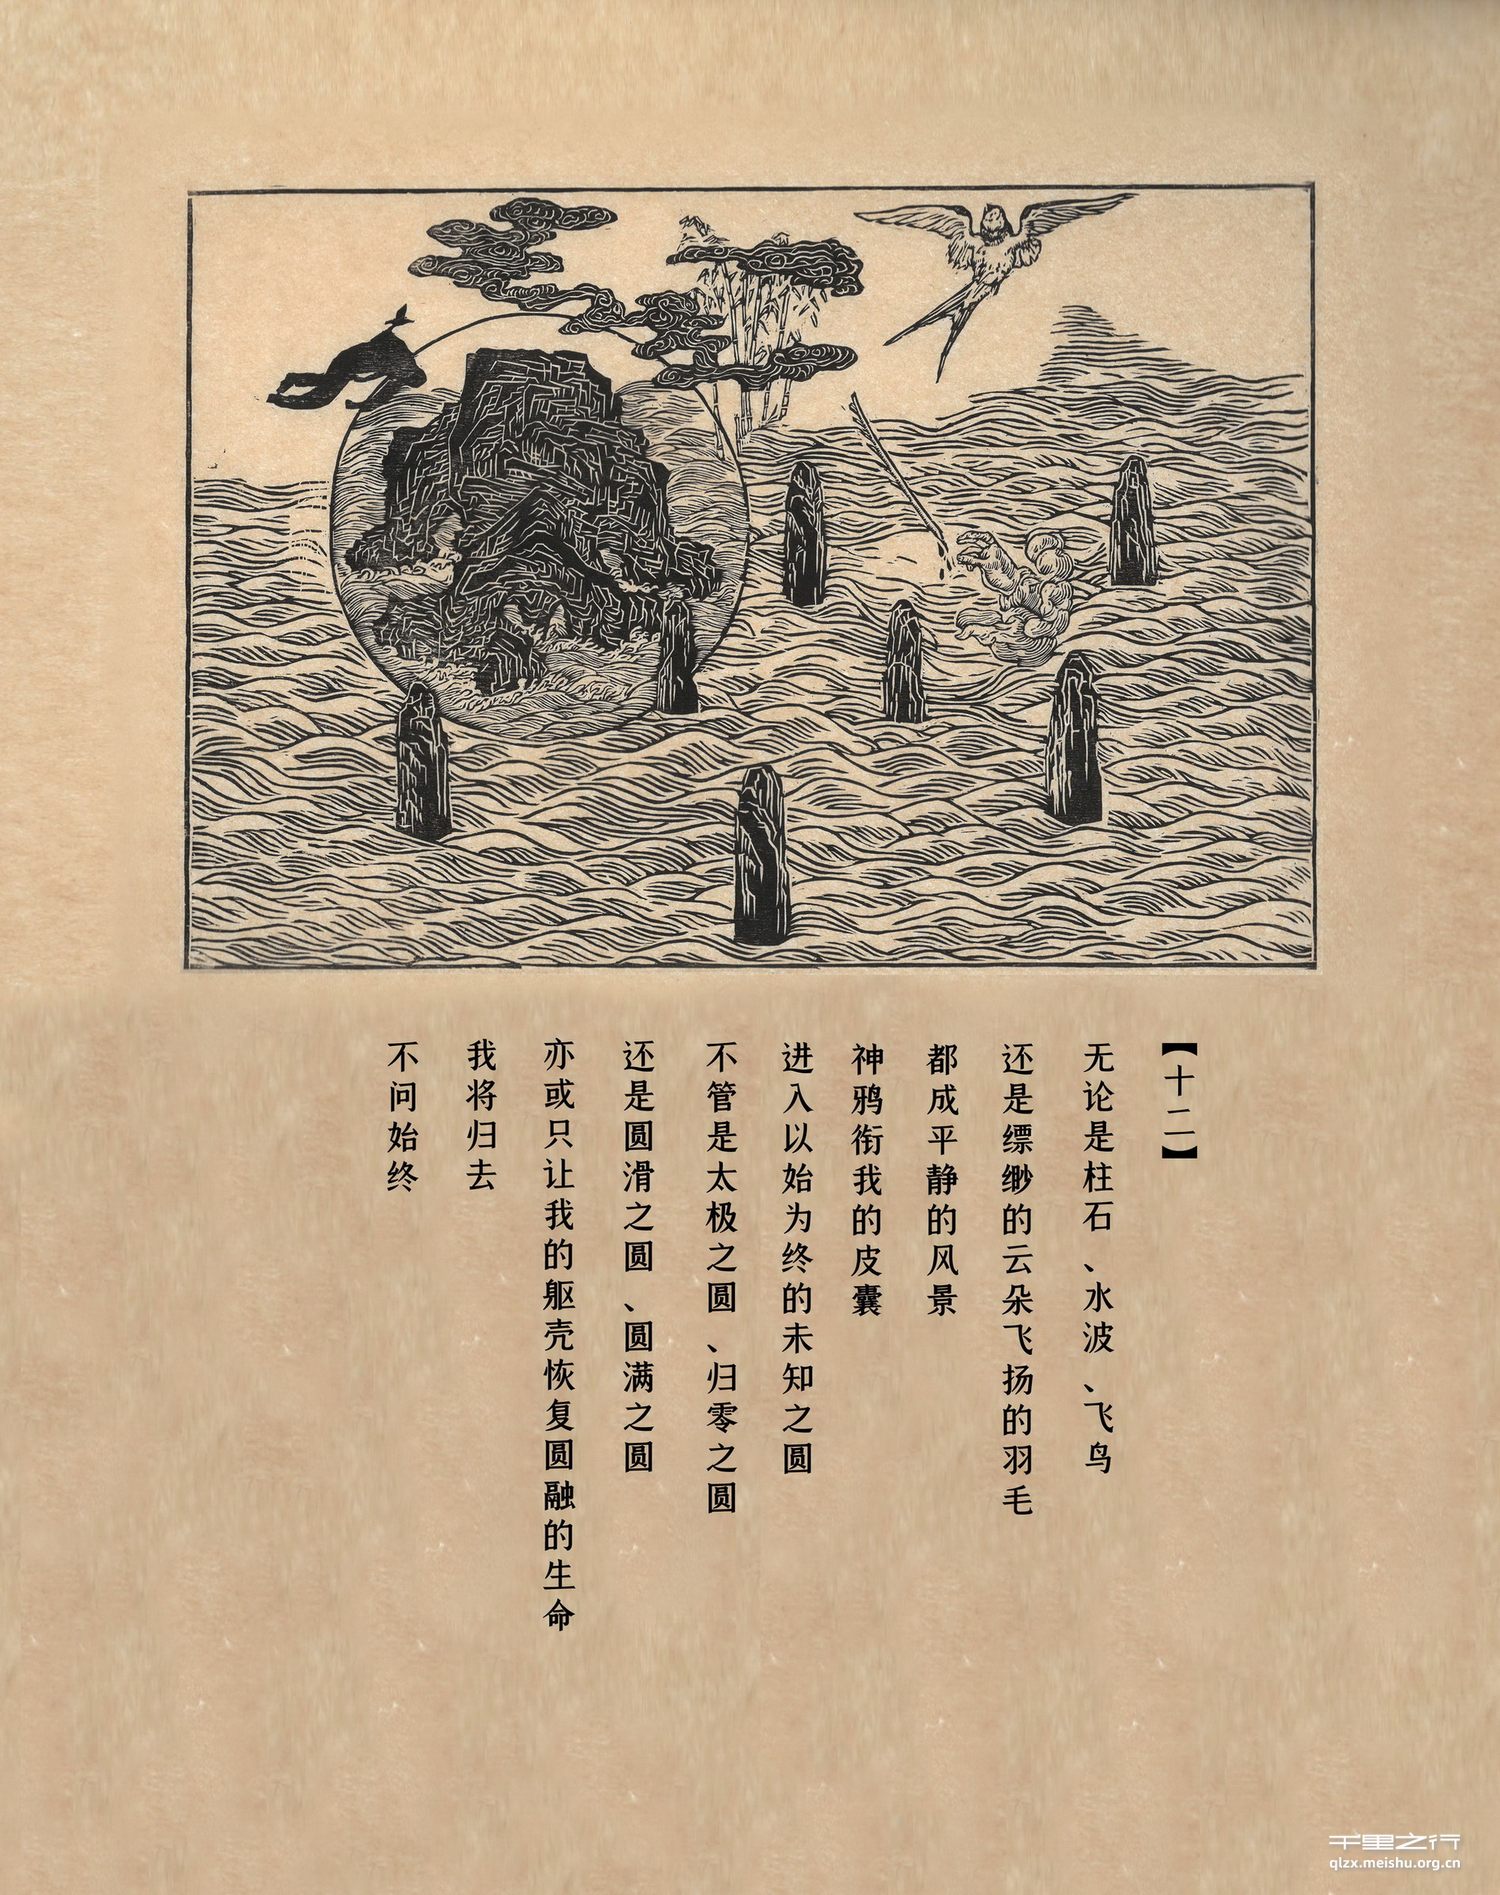 【十二】
无论是柱石、水波、飞鸟
还是缥缈的云朵飞扬的羽毛
都成平静的风景
神鸦衔我的皮囊
进入以始为终的未知之圆
不管是太极之圆、归零之圆
还是圆滑之圆、圆满之圆
亦或只让我的躯壳恢复圆融的生命
我将归去
不问始终
千里之行
qlzx.meishu.org.cn